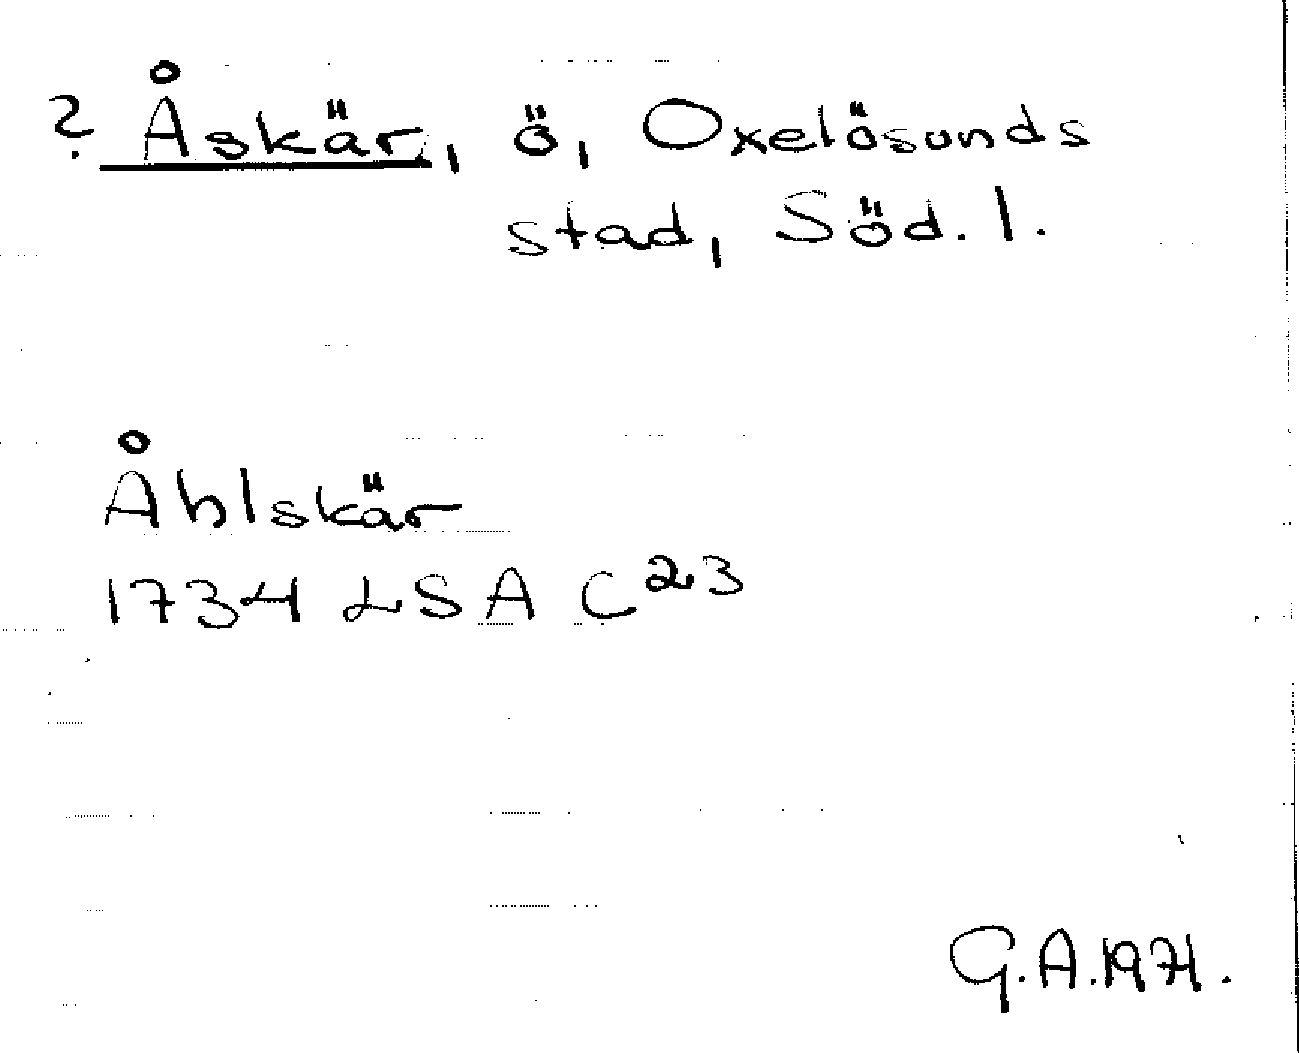 ? Åskär, ö, Oxelösunds
stad, Söd. l.
Åhlskär
1734 LSA C23
G.A.1971.